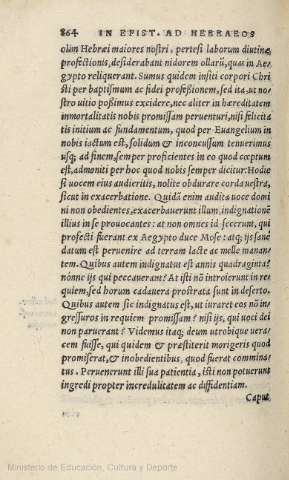 864 IN EPIST. AD HEBRAEOS
olim Hebræi maiores nostri, pertesi laborum diutinæ
profectionis, desiderabant nidorem ollarū, quas in Ae-
gypto reliquerant. Sumus quidem insiti corpori Chri
sti per baptismum ac fidei professionem, sed ita, ut no
stro uitio possimus excidere, nec aliter in hæreditatem
immortalitatis nobis promissam peruenturi, nisi felicita
tis initium ac fundamentum, quod per Euangelium in
nobis iactum est, solidum & inconcussum tenuerimus
usq; ad finem, semper proficientes in eo quod cœptum
est, admoniti per hoc quod nobis semper dicitur: Hodie
si uocem eius audieritis, nolite obdurare corda uestra,
sicut in exacerbatione. Quidā enim audita uoce domi
ni non obedientes, exacerbauerunt illum, indignationē
illius in se prouocantes: at non omnes id fecerunt, qui
profecti fuerant ex Aegypto duce Mose: atq; ijs sane
datum est peruenire ad terram lacte ac melle manan-
tem. Quibus autem indignatus est annis quadraginta?
nonne ijs qui peccauerant? At isti nō introierunt in re
quiem, sed horum cadauera prostrata sunt in deserto.
Quibus autem sic indignatus est, ut iuraret eos nō in-
gressuros in requiem promissam? nisi ijs, qui uoci dei
non paruerant? Videmus itaq; deum utrobique uera-
cem fuisse, qui quidem & præstiterit morigeris quod
promiserat, & inobedientibus, quod fuerat commina-
tus. Peruenerunt illi sua patientia, isti non potuerunt
ingredi propter incredulitatem ac diffidentiam.
Caput
Ministerio de Educación, Cultura y Deporte